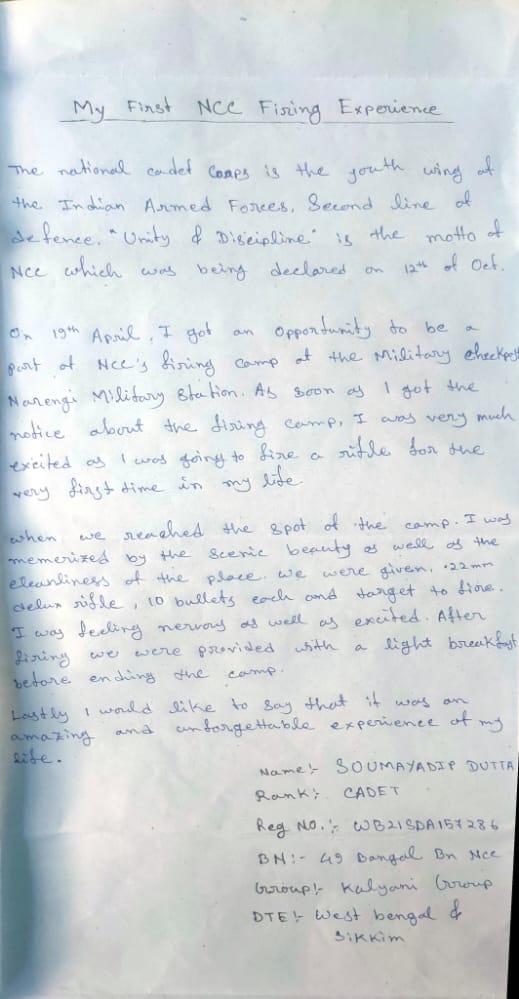 My First NCC Firing Experience
The national cadet Corps is the youth wing of
the Indian Armed Forces. Second line of
defence. "Unity & Discipline" is the motto of
NCC which was being declared on 12th of Oct.
On 19th April, I got an opportunity to be a
part of NCC's firing camp at the Military checkpost
Narengi Military Station. As soon as I got the
notice about the firing camp, I was very much
excited as I was going to fire a rifle for the
very first time in my life
when we reached the spot of the camp. I was
memerized by the scenic beauty as well as the
cleanliness of the place. we were given, .22mm
delux rifle, 10 bullets each and target to fire.
I was feeling nervous as well as excited. After
firing we were provided with a light breakfast
before ending the camp.
Lastly I would like to say that it was an
amazing and unforgettable experience of my
life.
Name:- SOUMAYADIP DUTTA
Rank:- CADET
Reg No.:- WB21SDA157286
BN:- 49 Bangal Bn Ncc
Group:- Kalyani Group
DTE:- West bengal &
Sikkim